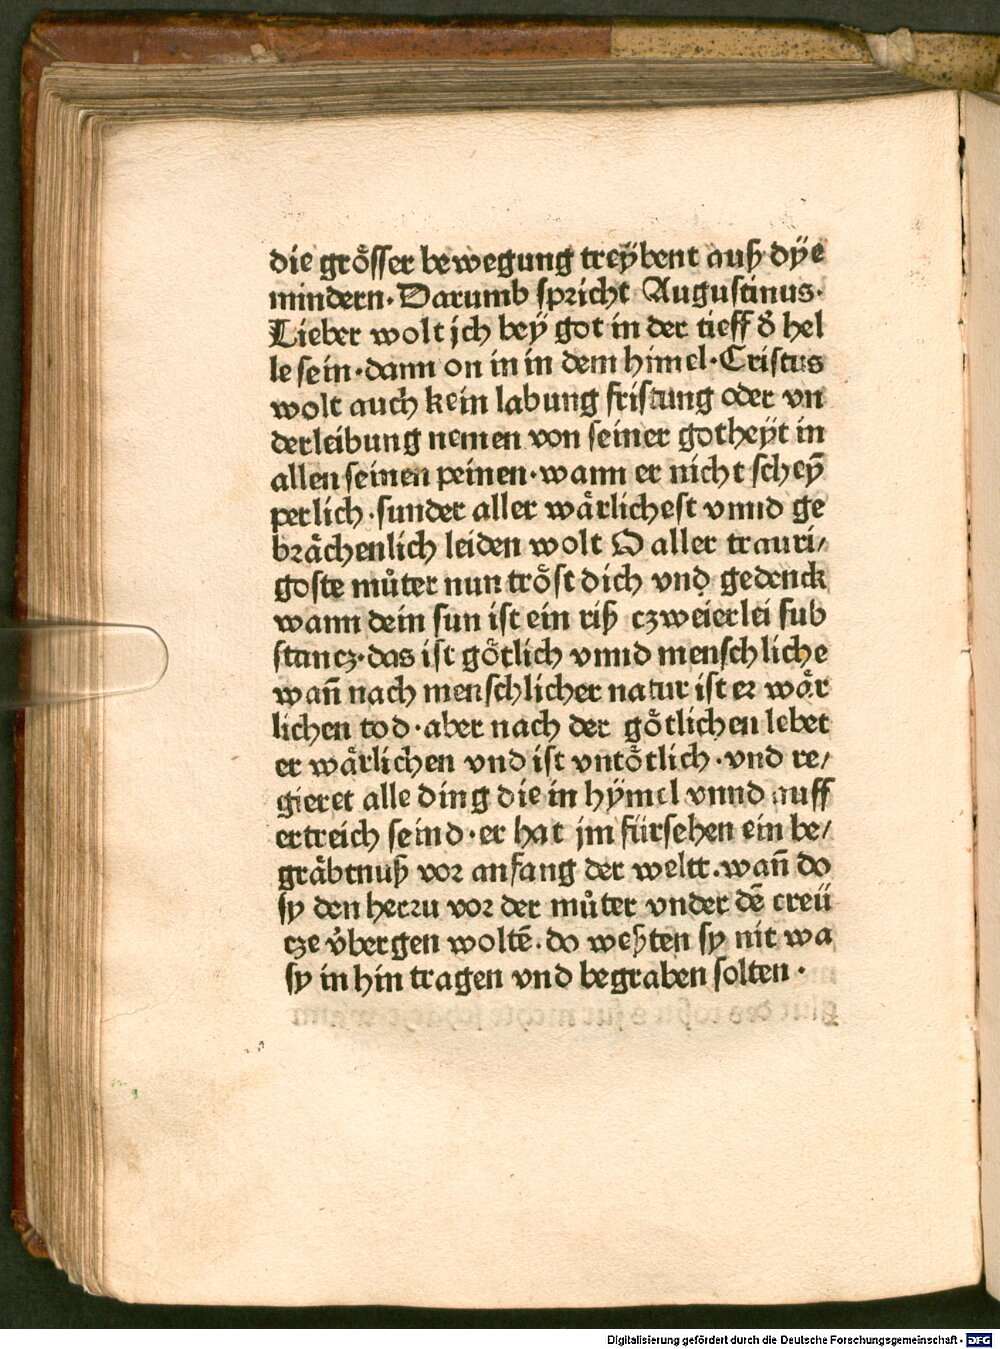 die gröſſer bewegung treÿbent auß dÿe
mindern· Darumb ſpꝛicht Auguſtinus·
Lieber wolt jch beÿ got in der tieff d̕ hel
le ſein·dann on in in dem himel·Criſtus
wolt auch kein labung friſtung oder vn
derleibung nemen von ſeiner gotheÿt in
allen ſeinen peinen·wann er nicht ſcheÿ
perlich·ſunder aller wärlicheſt vnnd ge
bꝛächenlich leiden wolt O aller trauri/
goſte můter nun tröſt dich vnd gedenck
wann dein ſun iſt ein riß czweierlei ſub
ſtancz·das iſt götlich vnnd menſchliche
wan̄ nach menſchlicher natur iſt eꝛ wär
lichen tod·aber nach der götlichen lebet
er wärlichen vnd iſt vntötlich·vnd re/
gieret alle ding die in hÿmel vnnd auff
ertreich ſeind·er hat jm fürſehen ein be/
gräbtnuß voꝛ anfang der weltt·wan̄ do
ſy den herꝛn voꝛ der můter vnder dē creü
cze v̊bergen woltē·do weßten ſy nit wa
ſy in hin tragen vnd begraben ſolten·
Digitalisierung gefördert durch die Deutsche Forschungsgemeinschaft - DFG